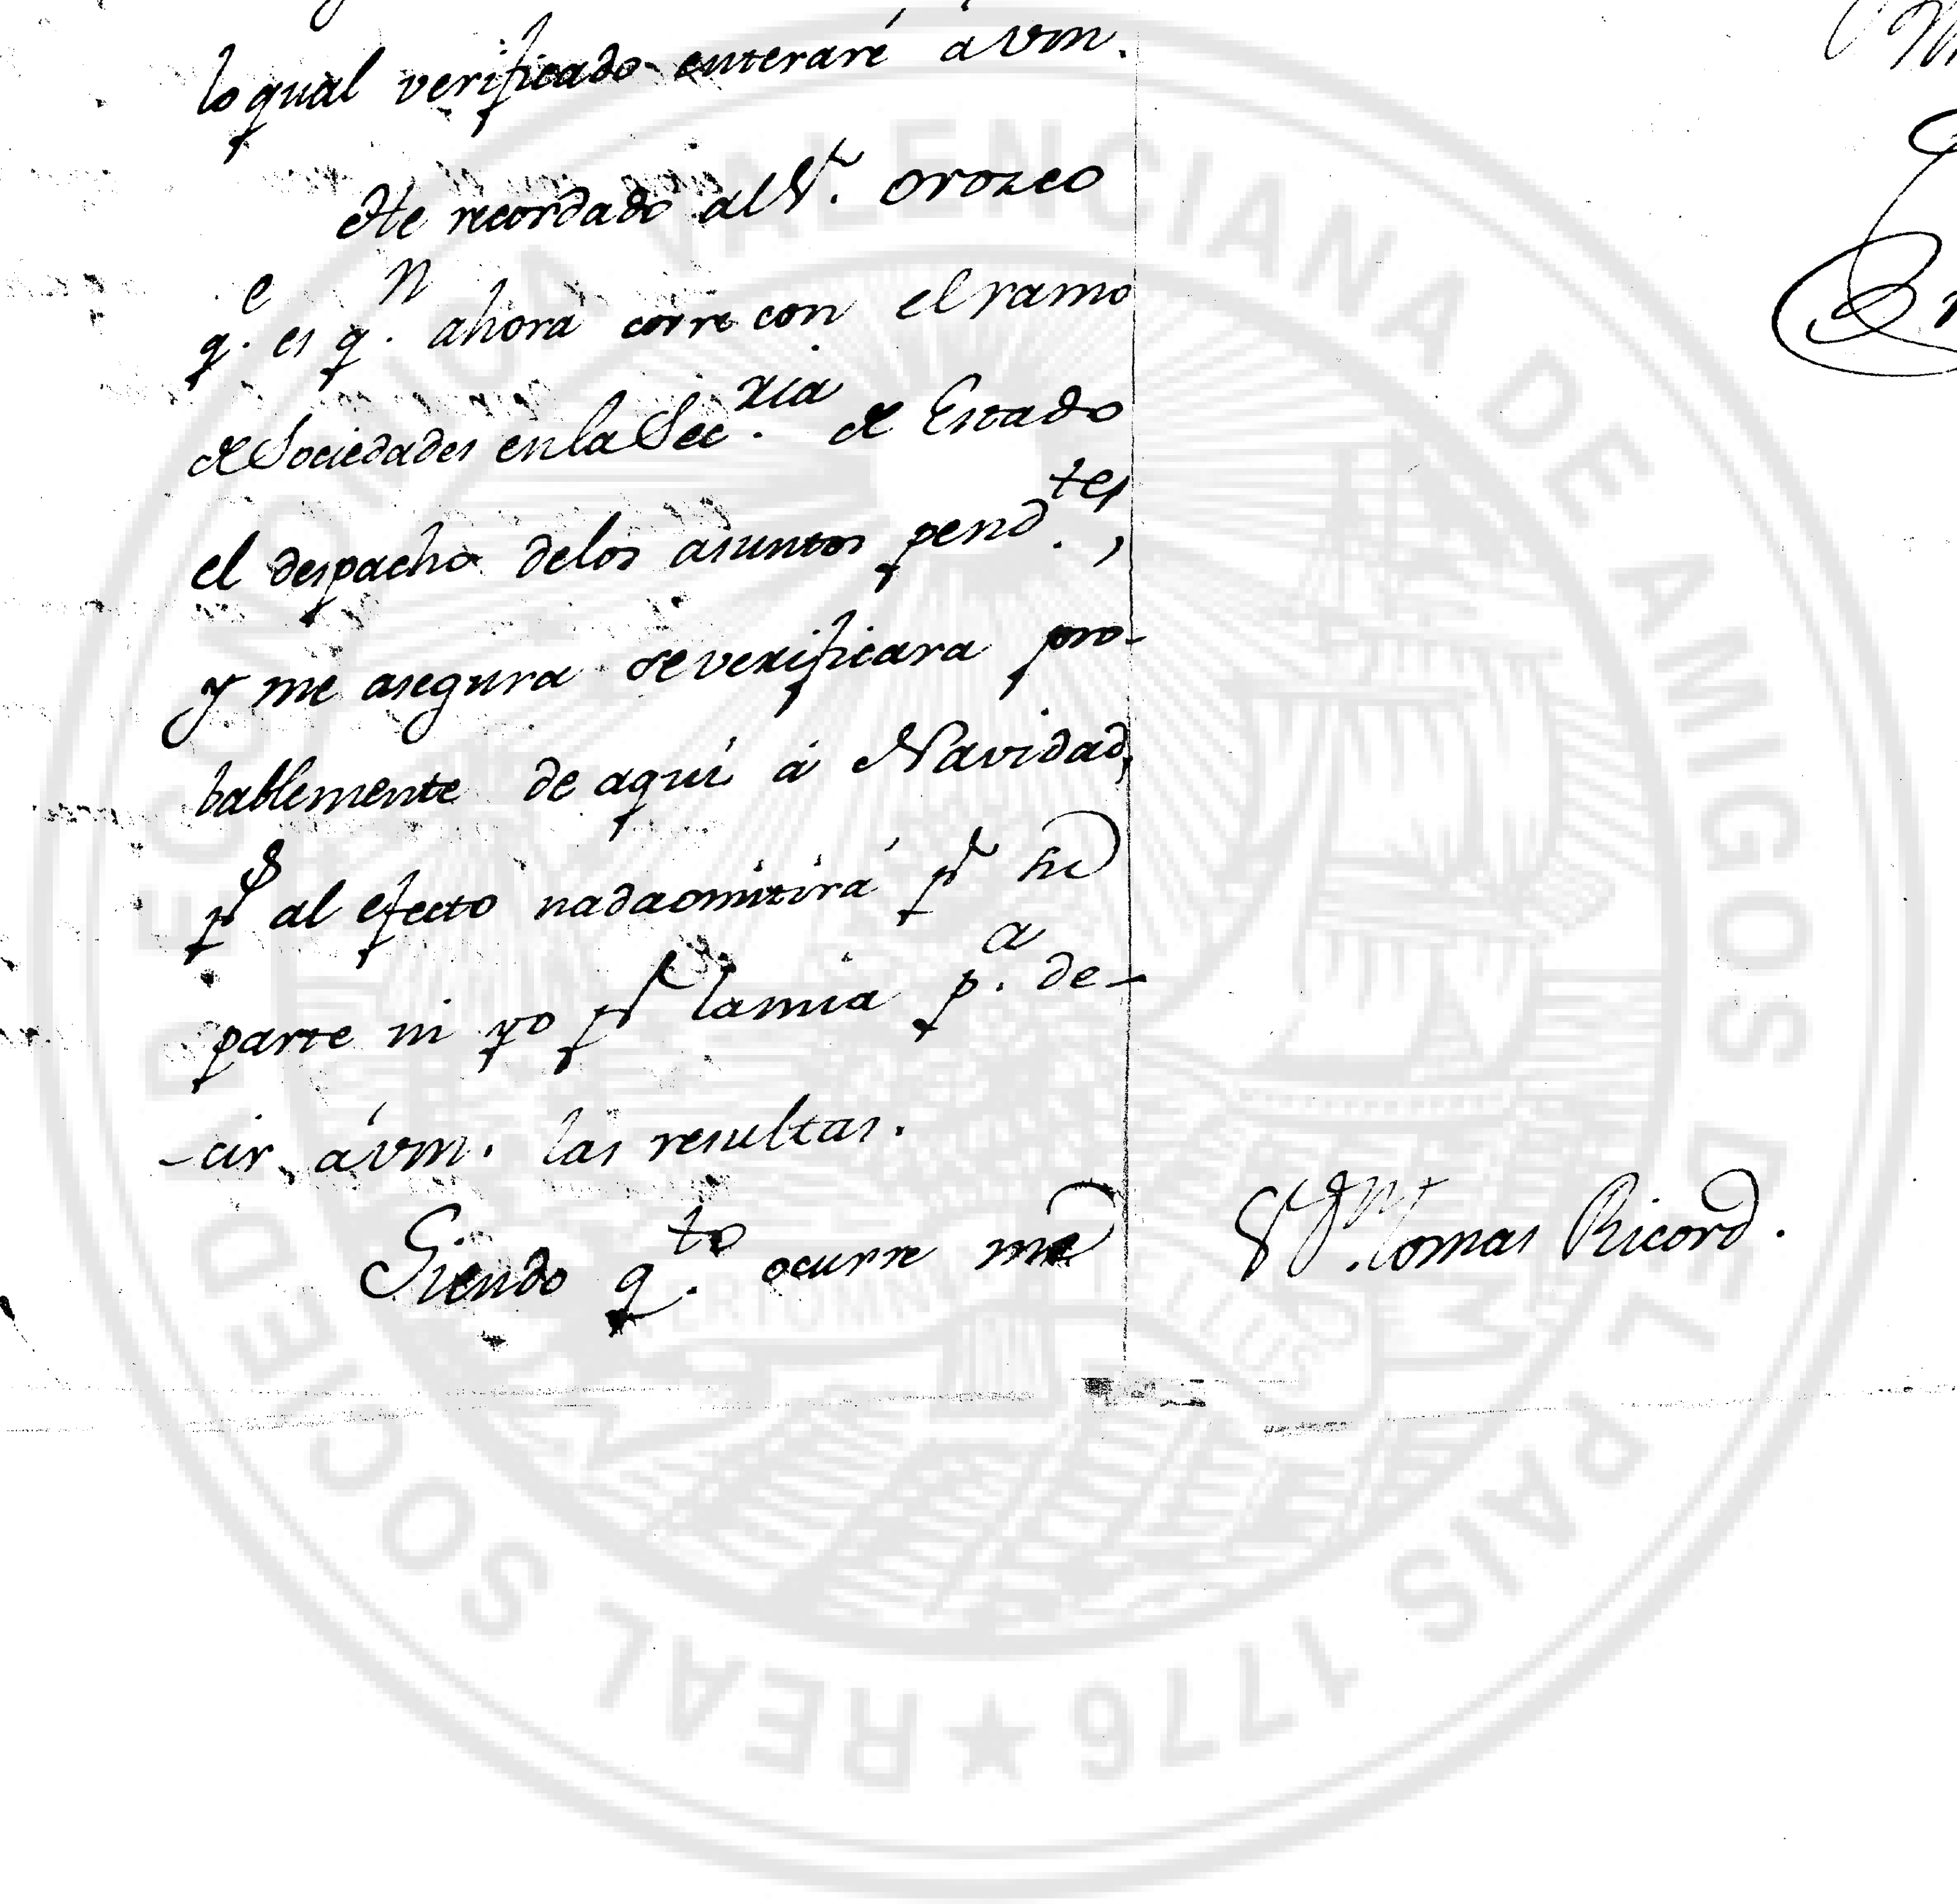 lo qual verificado enteraré á vm.
He recordado al Sr. Orozco
q.e es q.n ahora corre con el ramo
de Sociedades en la Sec.ria de Estado
el despacho de los asuntos pend.tes,
y me asegura se verificara pro-
bablemente de aqui á Navidad,
ps al efecto nada omitirá pr su
parte ni yo pr la mia p.a de-
-cir á vm. las resultas.
Siendo q.to ocurre me
Sr Dn. Tomas Ricord.
REAL SOCIEDAD ECONOMICA VALENCIANA DE AMIGOS DEL PAIS 1776